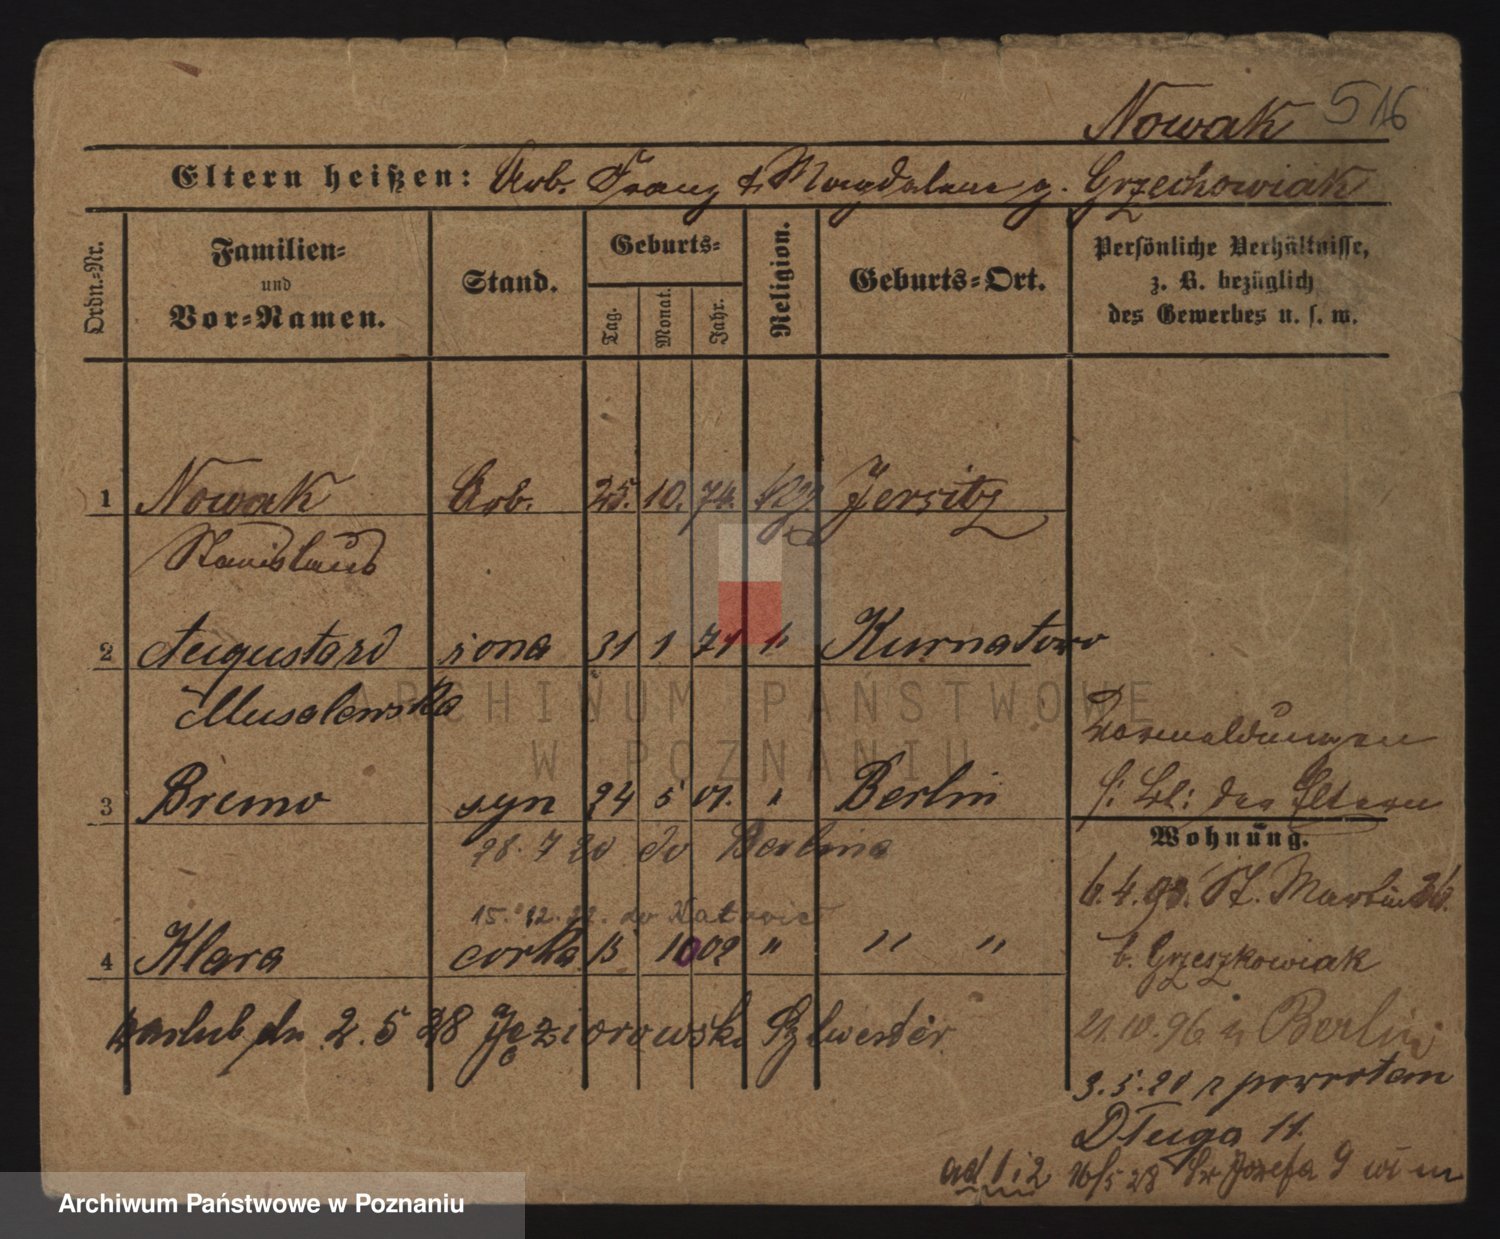 Nowak 516
Eltern heißen: Arb. Franz & Magdalena g. Grzechowiak
Ordn.-Nr.
Familien- und Vor-Namen.
Stand.
Geburts-
Tag.
Monat.
Jahr.
Religion.
Geburts-Ort.
Persönliche Verhältnisse,
z. B. bezüglich
des Gewerbes u. s. w.
1 Nowak Arb. 25. 10. 74. Jersitz
Stanislaus
2 Augustard żona 31 1 71 " Kurnatowo
Musalewska
3 Bremo syn 24 5 01. " Berlin
28. 7 20 do Berlina
15. 12. 22. do Katowic
4 Klara corka 13 10 02 " " "
zaslub dn 2. 5 28 Jęziorowski Sylwester
Vormeldungen
s: Bl: der Eltern
Wohnung.
6. 4. 93. St. Martin 26.
b. Grzeszkowiak
21. 10. 96 n Berlin
3. 5. 20 z powrotem
Długa 11.
ad 1 i 2 16/5 28 Św Józefa 9 w m
ARCHIWUM PAŃSTWOWE
W POZNANIU
Archiwum Państwowe w Poznaniu